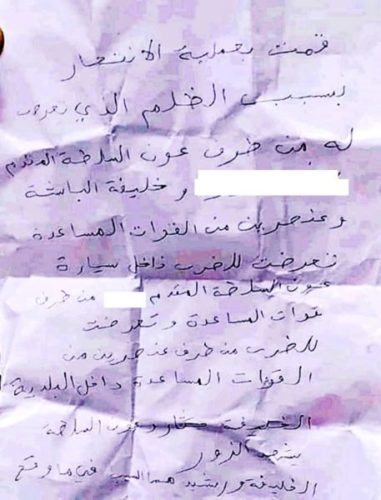 قمت بعملية الانتحار
بسبب الظلم الذي تعرضت
له من طرف عون السلطة المقدم
و خليفة الباشة
و عنصرين من القوات المساعدة
تعرضت للضرب داخل سيارة
عون السلطة المقدم من طرف
قوات المساعدة و تعرضت
للضرب من طرف عنصرين من
القوات المساعدة داخل البلدية
السلطة
الزور
الخليفة و رشيد هما السبب في ما وقع